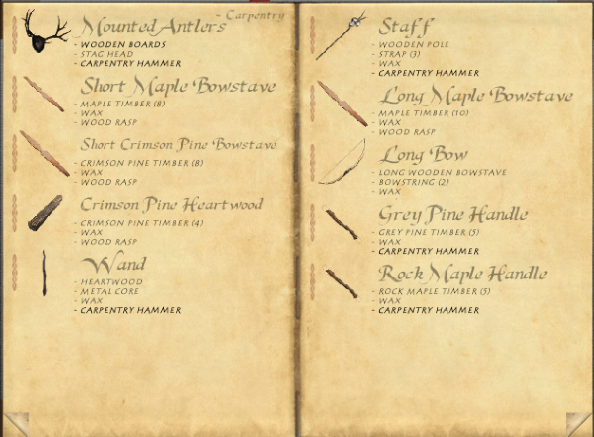 ~ Carpentry
Mounted Antlers
- WOODEN BOARDS
- STAG HEAD
- CARPENTRY HAMMER
Short Maple Bowstave
- MAPLE TIMBER (8)
- WAX
- WOOD RASP
Short Crimson Pine Bowstave
- CRIMSON PINE TIMBER (8)
- WAX
- WOOD RASP
Crimson Pine Heartwood
- CRIMSON PINE TIMBER (4)
- WAX
- WOOD RASP
Wand
- HEARTWOOD
- METAL CORE
- WAX
- CARPENTRY HAMMER
Staff
- WOODEN POLL
- STRAP (3)
- WAX
- CARPENTRY HAMMER
Long Maple Bowstave
- MAPLE TIMBER (10)
- WAX
- WOOD RASP
Long Bow
- LONG WOODEN BOWSTAVE
- BOWSTRING (2)
- WAX
Grey Pine Handle
- GREY PINE TIMBER (5)
- WAX
- CARPENTRY HAMMER
Rock Maple Handle
- ROCK MAPLE TIMBER (5)
- WAX
- CARPENTRY HAMMER